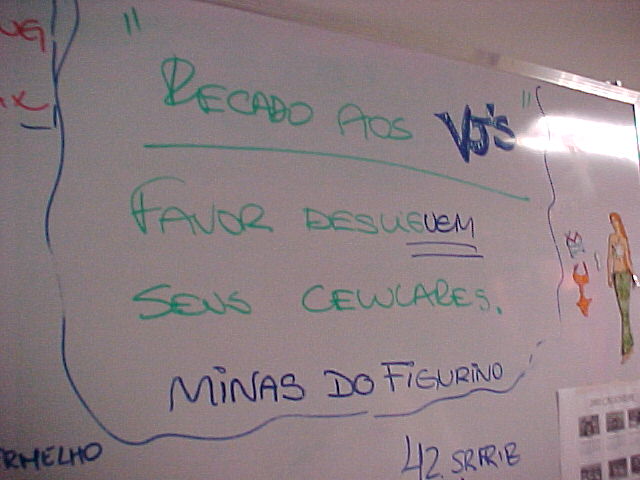 "RECADO AOS VJ'S"
FAVOR DESLIGUEM
SEUS CELULARES.
MINAS DO FIGURINO
ERMELHO
42